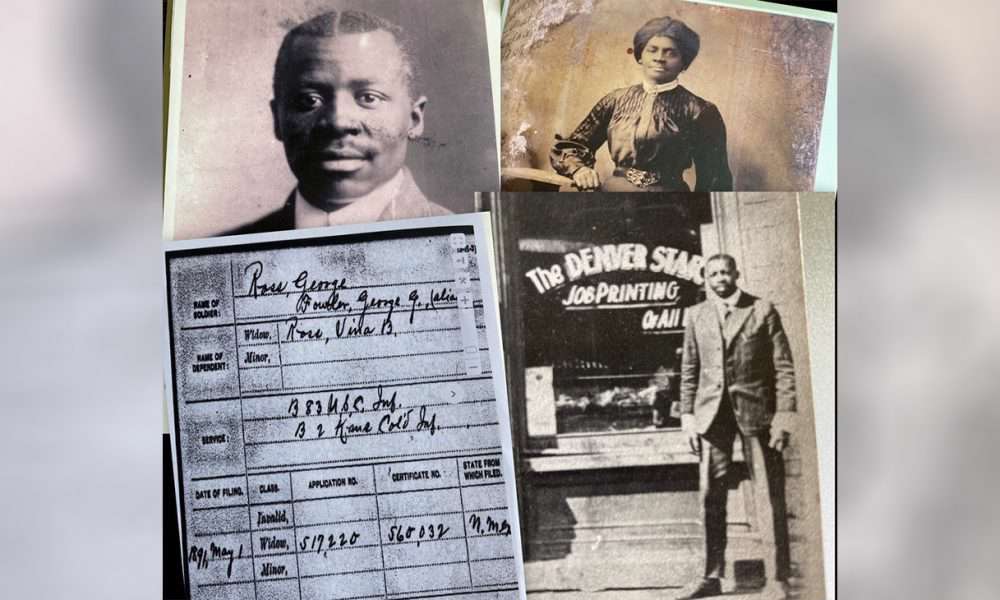 The DENVER STAR
JOB PRINTING
Of All
NAME OF
SOLDIER:
Ross, George
George G., (alias
NAME OF
DEPENDENT:
Widow, Ross, Vina B.
Minor,
SERVICE:
B 83 U.S.C. Inf.
B 2 Kans Col'd Inf.
DATE OF FILING. CLASS. APPLICATION NO. CERTIFICATE NO. STATE FROM
WHICH FILED.
Invalid,
1891, May 1 Widow, 517,220 560,032 N. Mex
Minor,